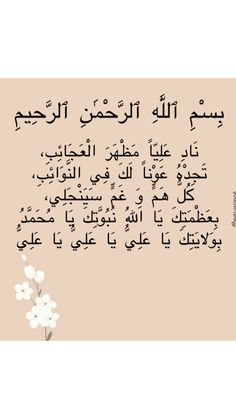 بِسْمِ ٱللَّٰهِ ٱلرَّحْمَٰنِ ٱلرَّحِيمِ
نَادِ عَلِيَّاً مَظْهَرَ الْعَجَائِبِ،
تَجِدْهُ عَوْناً لَكَ فِي النَّوَائِبِ،
كُلُّ هَمٍّ وَ غَمٍّ سَيَنْجَلِي،
بِعَظَمَتِكَ يَا اللهُ نُبُوَّتِكَ يَا مُحَمَّدُ
بِوِلَايَتِكَ يَا عَلِيُّ يَا عَلِيُّ يَا عَلِيُّ